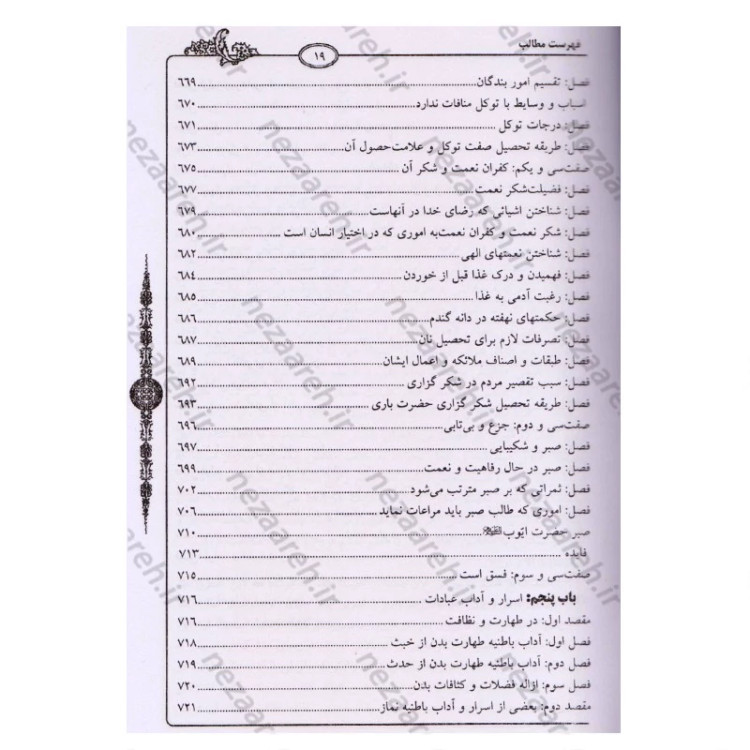 فهرست مطالب
۱۹
فصل: تقسیم امور بندگان ۶۶۹
اسباب و وسایط با توکل منافات ندارد ۶۷۰
فصل: درجات توکل ۶۷۱
فصل: طریقه تحصیل صفت توکل و علامت‌حصول آن ۶۷۳
صفت‌سی و یکم: کفران نعمت و شکر آن ۶۷۵
فصل: فضیلت‌شکر نعمت ۶۷۷
فصل: شناختن اشیائی که رضای خدا در آنهاست ۶۷۹
فصل: شکر نعمت و کفران نعمت‌به اموری که در اختیار انسان است ۶۸۰
فصل: شناختن نعمتهای الهی ۶۸۲
فصل: فهمیدن و درک غذا قبل از خوردن ۶۸۴
فصل: رغبت آدمی به غذا ۶۸۵
فصل: حکمتهای نهفته در دانه گندم ۶۸۶
فصل: تصرفات لازم برای تحصیل نان ۶۸۷
فصل: طبقات و اصناف ملائکه و اعمال ایشان ۶۸۹
فصل: سبب تقصیر مردم در شکر گزاری ۶۹۲
فصل: طریقه تحصیل شکر گزاری حضرت باری ۶۹۳
صفت‌سی و دوم: جزع و بی‌تابی ۶۹۶
فصل: صبر و شکیبایی ۶۹۷
فصل: صبر در حال رفاهیت و نعمت ۶۹۹
فصل: ثمراتی که بر صبر مترتب می‌شود ۷۰۲
فصل: اموری که طالب صبر باید مراعات نماید ۷۰۶
صبر حضرت ایّوب ۷۱۰
فایده ۷۱۳
صفت‌سی و سوم: فسق است ۷۱۵
باب پنجم: اسرار و آداب عبادات ۷۱۶
مقصد اول: در طهارت و نظافت ۷۱۶
فصل اول: آداب باطنیه طهارت بدن از خبث ۷۱۸
فصل دوم: آداب باطنیه طهارت بدن از حدث ۷۱۹
فصل سوم: ازاله فضلات و کثافات بدن ۷۲۰
مقصد دوم: بعضی از اسرار و آداب باطنیه نماز ۷۲۱
nezaareh.ir